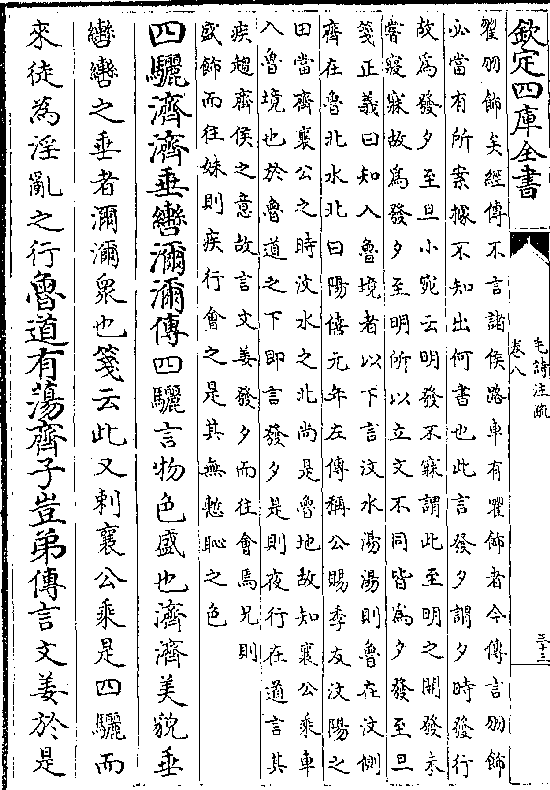 欽定四庫全書
毛詩注疏
卷八
三十三
翟羽飾矣經傳不言諸侯路車有翟飾者今傳言羽飾
必當有所案據不知出何書也此言發夕謂夕時發行
故為發夕至旦小宛云明發不寐謂此至明之開發未
嘗寢寐故為發夕至明所以立文不同皆為夕發至旦
箋正義曰知入魯境者以下言汶水湯湯則魯在汶側
齊在魯北水北曰陽僖元年左傳稱公賜季友汶陽之
田當齊襄公之時汶水之北尚是魯地故知襄公乘車
入魯境也於魯道之下即言發夕是則夜行在道言其
疾趨齊侯之意故言文姜發夕而往會焉兄則
盛飾而往妹則疾行會之是其無慙恥之色
四驪濟濟垂轡濔濔傳四驪言物色盛也濟濟美貌垂
轡轡之垂者濔濔衆也箋云此又刺襄公乘是四驪而
來徒為淫亂之行魯道有蕩齊子豈弟傳言文姜於是